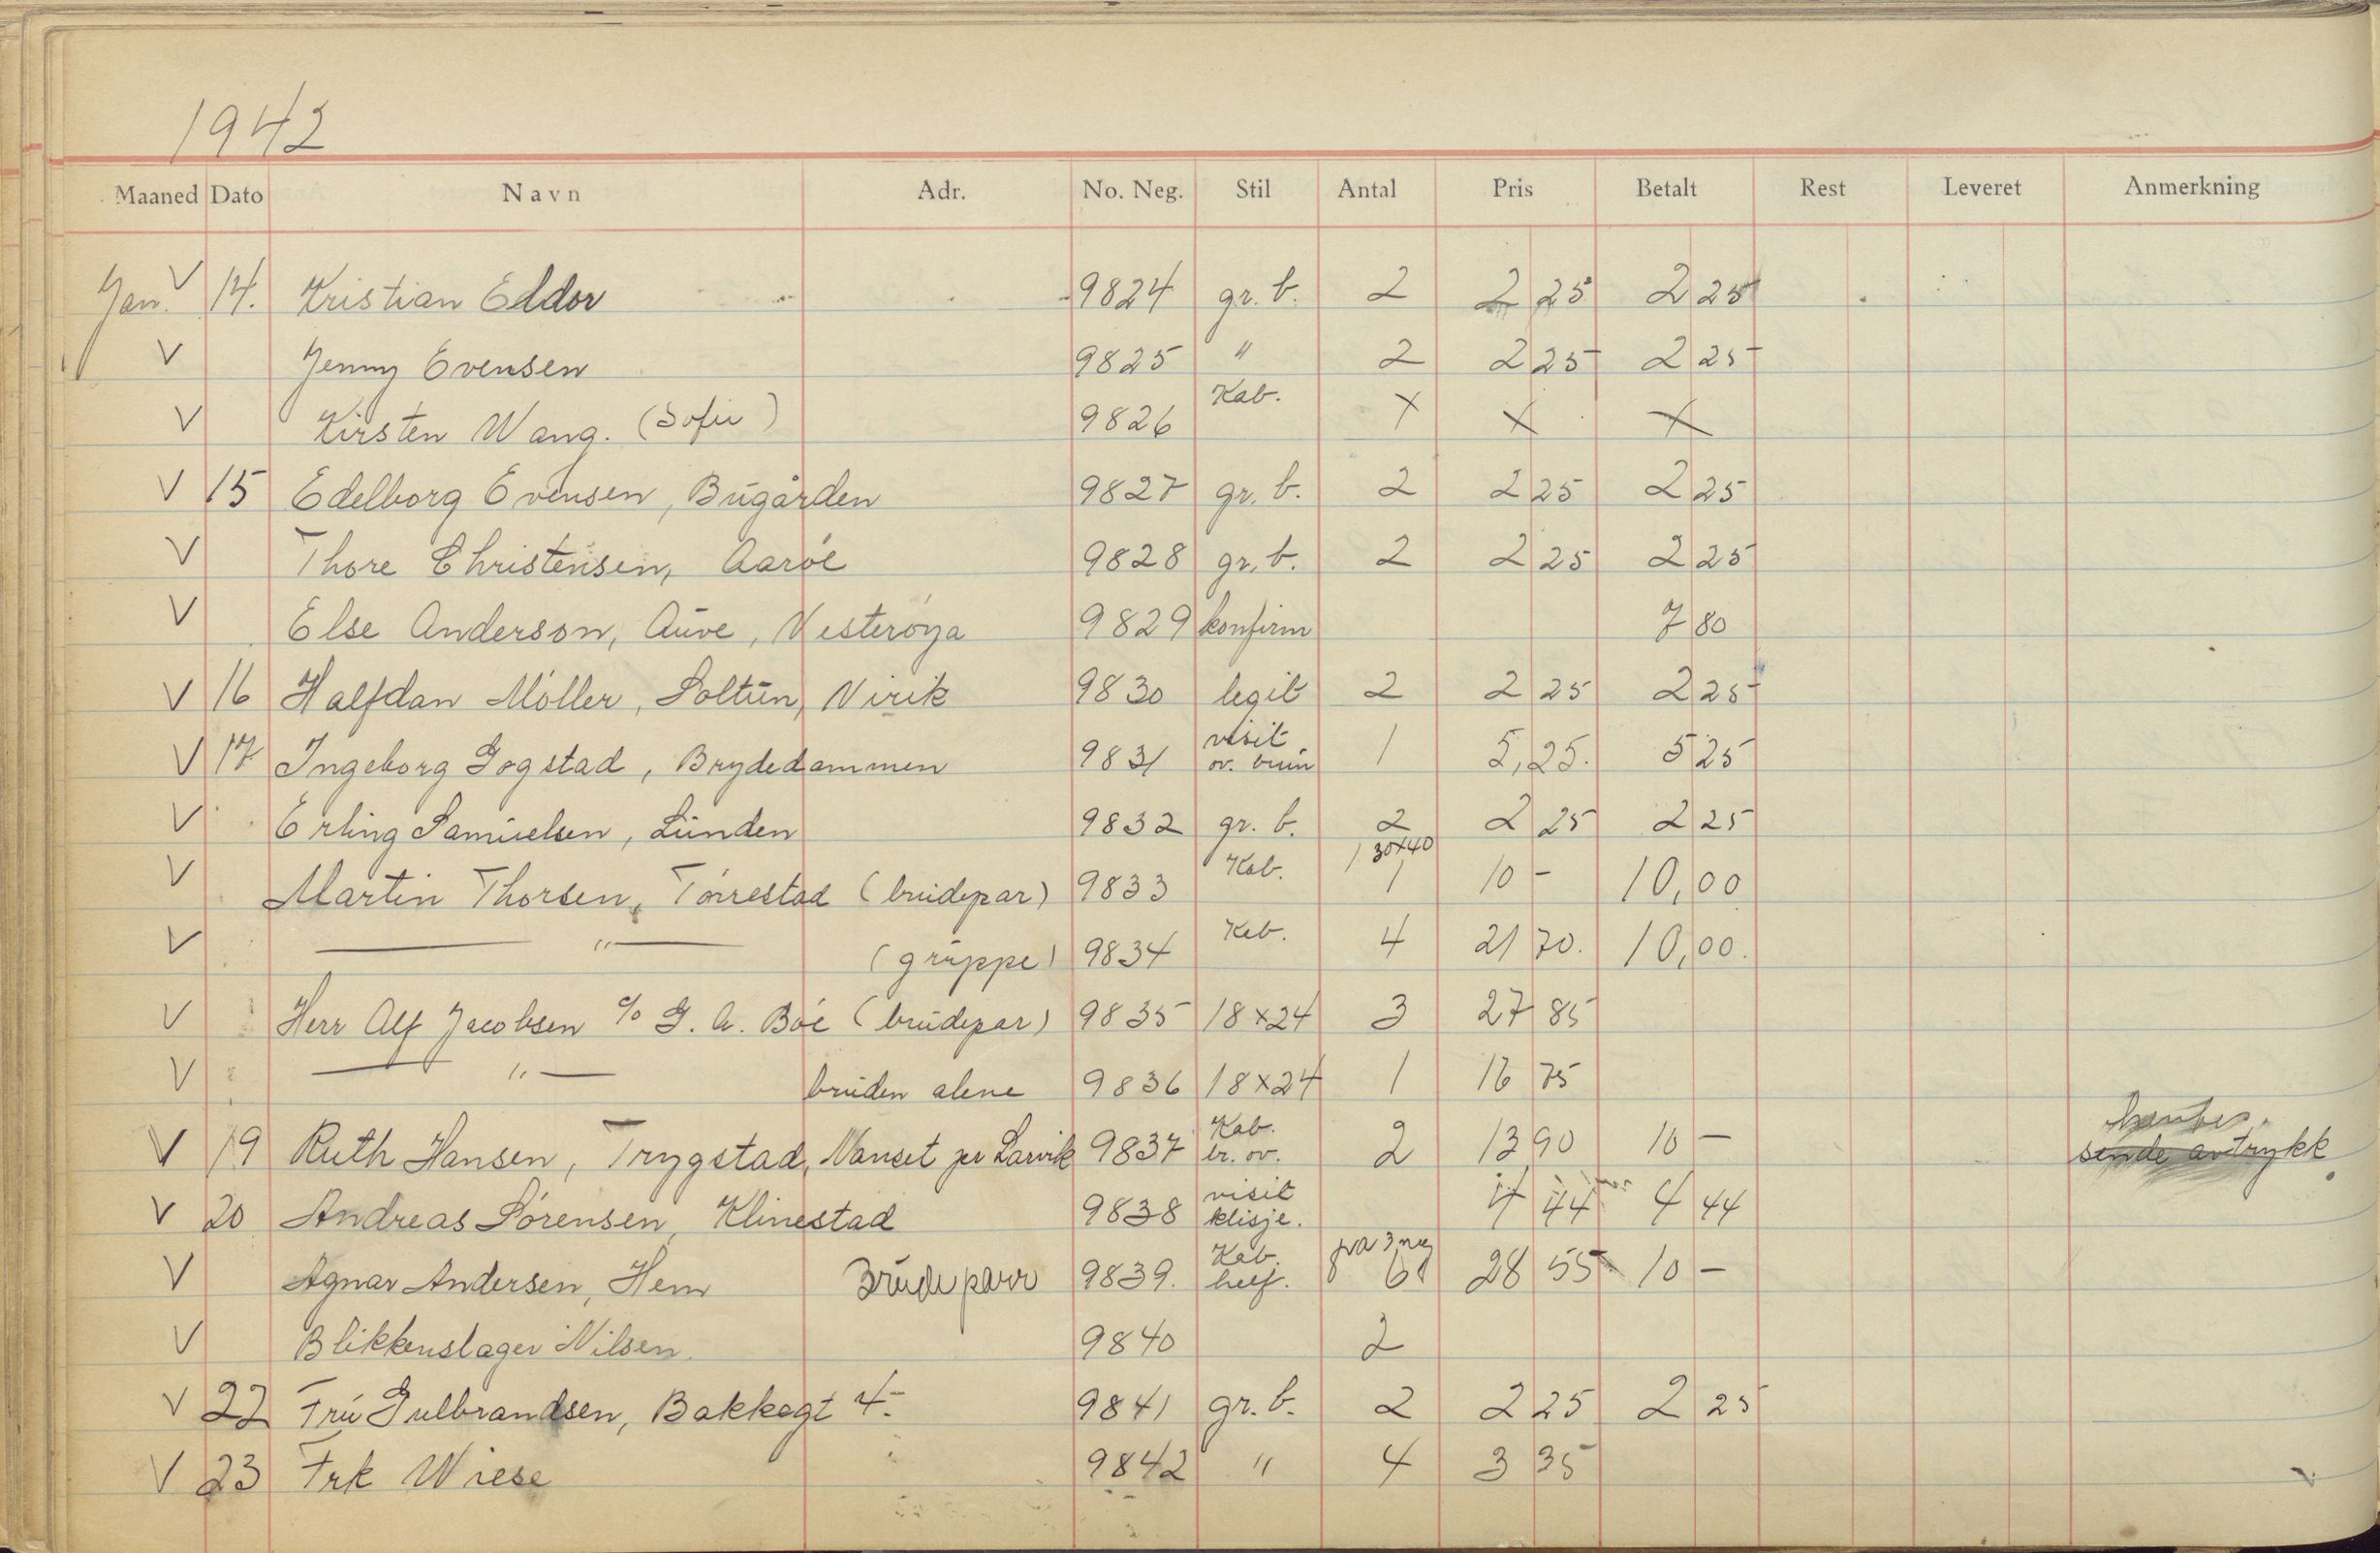 1942
Maaned Dato Navn Adr. No. Neg. Stil Antal Pris Betalt Rest Leveret Anmerkning
Jan. V 14. Kristian Eldor 9824 gr. b. 2 2 25 2 25
V Jenny Evensen 9825 " 2 2 25 2 25
V Kirsten Wang. (Sofie) 9826 Kab. X X X
V 15 Edelborg Evensen, Bugården 9827 gr. b. 2 2 25 2 25
V Thore Christensen, Aaröe 9828 gr. b. 2 2 25 2 25
V Else Anderson, Auve, Vesterøya 9829 konfirm 7 80
V 16 Halfdan Möller, Soltun, Virik 9830 legit 2 2 25 2 25
V 17 Ingeborg Gogstad, Brydedammen 9831 visit ov. brun 1 5,25. 5 25
V Erling Samuelsen, Lunden 9832 gr. b. 2 2 25 2 25
V Martin Thorsen, Tørrestad (brudepar) 9833 Kab. 1 30x40 1 10 - 10,00
V — " — (gruppe) 9834 Kab. 4 21 70. 10,00.
V Herr Alf Jacobsen c/o G. A. Böe (brudepar) 9835 18x24 3 27 85
V — " — bruden alene 9836 18x24 1 16 75
V 19 Ruth Hansen, Trygstad, Nanset per Larvik 9837 Kab. br. ov. 2 13 90 10 — sende avtrykk
V 20 Andreas Sörensen, Klinestad 9838 visit klisje. 4 44 4 44
V Agnar Andersen, Hem Brudeparr 9839. Kab. helf. fra 3 neg 6 28 55 10 —
V Blikkenslager Nilsen. 9840 2
V 22 Fru Gulbrandsen, Bakkegt 4. 9841 gr. b. 2 2 25 2 25
V 23 Frk Wiese 9842 " 4 3 35